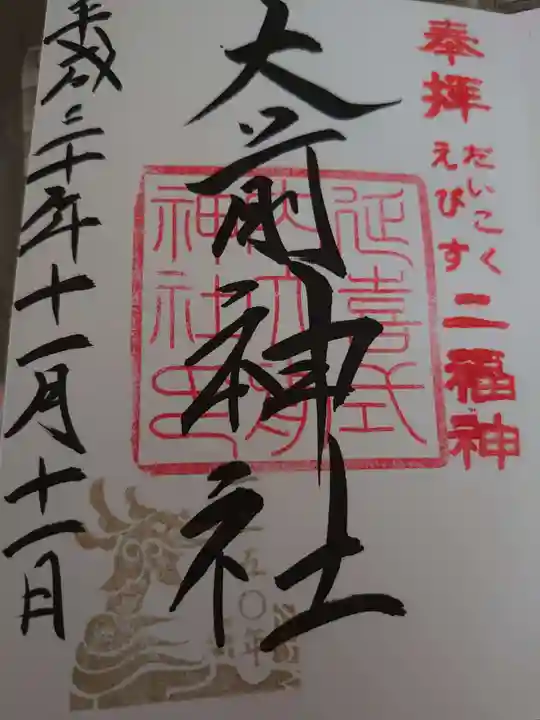 奉拝
だいこく
えびす
二福神
延喜式
内大前
神社印
大前神社
五〇年
平成三十年十一月十一日